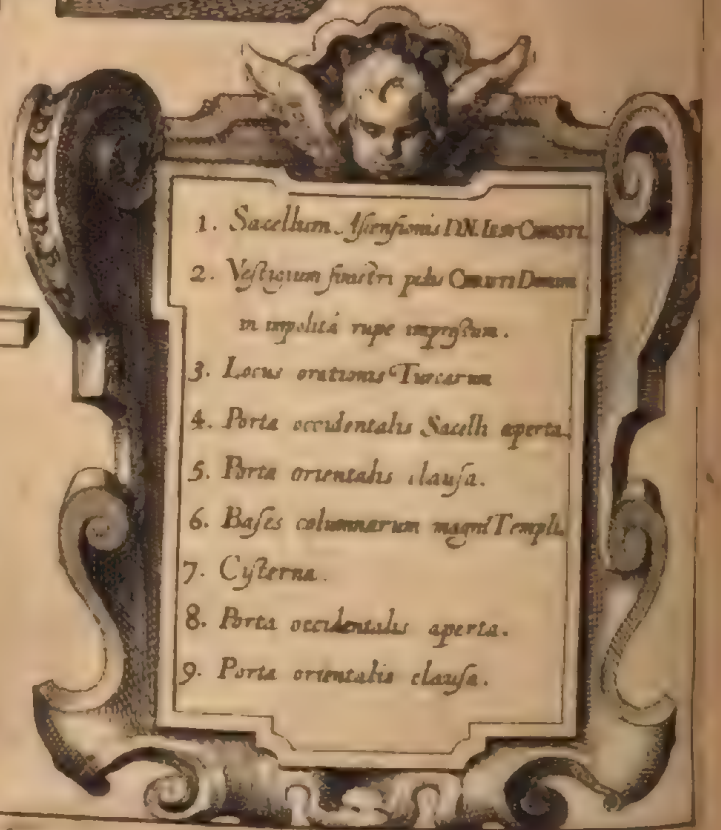 1. Sacellum Ascensionis DN. IESV CHRISTI.
2. Vestigium sinistri pedis CHRISTI Domini
in impolitâ rupe impressum.
3. Locus orationis Turcarum
4. Porta occidentalis Sacelli aperta.
5. Porta orientalis clausa.
6. Bases columnarum magni Templi.
7. Cysterna.
8. Porta occidentalis aperta.
9. Porta orientalis clausa.